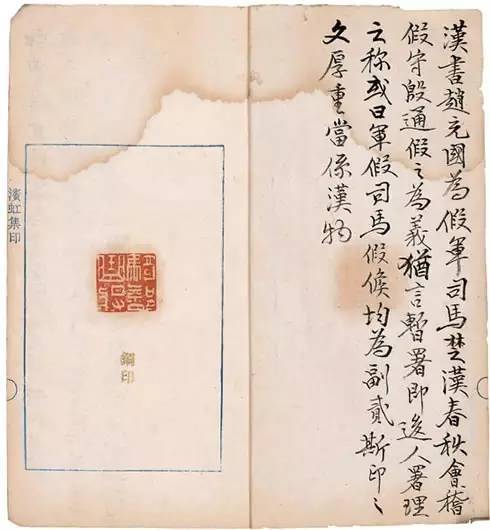 漢書趙充國為假軍司馬楚漢春秋會稽
假守殷通假之為義猶言暫署即後人署理
之称或曰軍假司馬假候均為副貳斯印之
文厚重當係漢物
銅印
濱虹集印